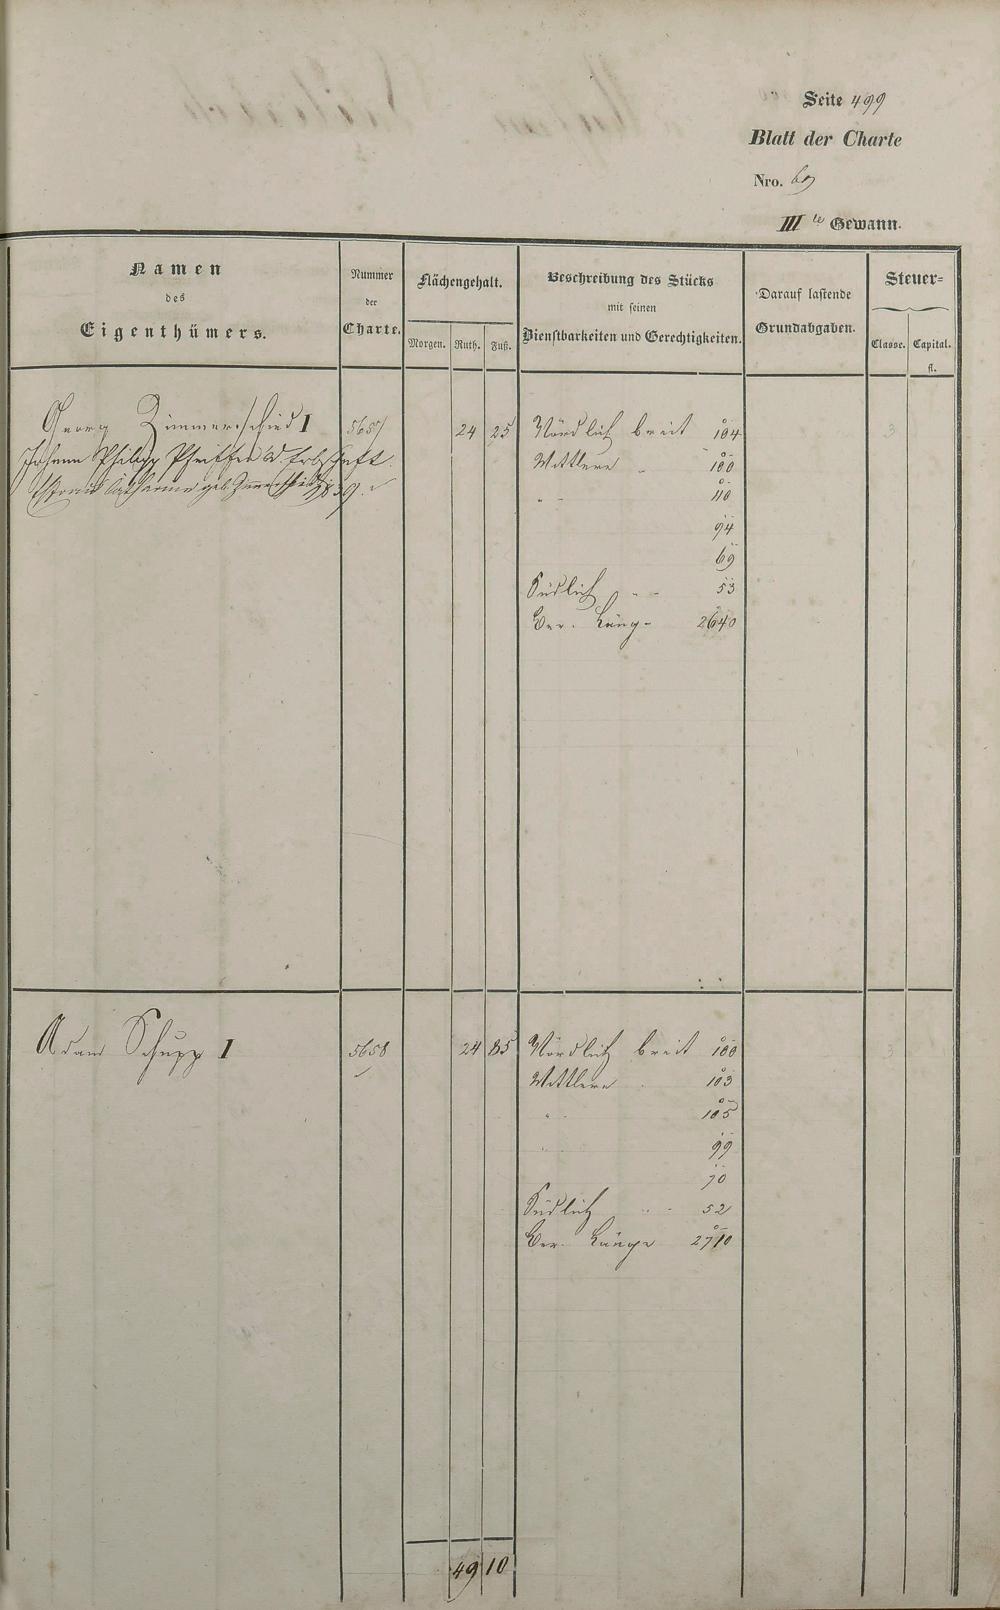 Seite 499
Blatt der Charte
Nro. 69
III te Gewann.
Namen
des
Eigenthümers.
Nummer
der
Charte.
Flächengehalt.
Morgen. Ruth. Fuß.
Beschreibung des Stücks
mit seinen
Dienstbarkeiten und Gerechtigkeiten.
Darauf lastende
Grundabgaben.
Steuer=
Classe. Capital.
fl.
Georg Zimmerschied I 5657 24 25 Nördlich breit 104 3
Johann Philipp Pfeiffer d. Erbschaft
Catharine geb. Zimmerschied 1839.
Mittlere 100
" 110
94
69
Südlich " 53
Ver. Läng- 2640
Adam Schupp I 5658 24 85 Nördlich breit 100 3
Mittlere 103
" 105
" 99
70
Südlich " 52
Ver. Länge 2710
49 10